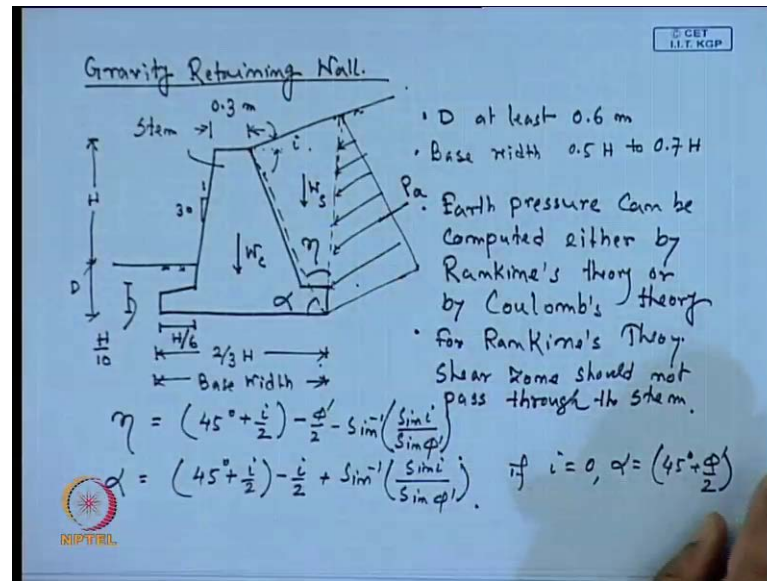 © CET
I.I.T. KGP
Gravity Retaining Wall.
0.3 m
Stem
i
H
1
30
Ws
Pa
Wc
η
α
D
H/10
H/6
2/3 H
Base width
• D at least 0.6 m
• Base width 0.5 H to 0.7 H
• Earth pressure can be
computed either by
Rankine's theory or
by Coulomb's theory
• For Rankine's Theoy.
Shear zone should not
pass through th stem.
η = (45° + i/2) - φ'/2 - Sin⁻¹(Sin i / Sin φ')
α = (45° + i/2) - i/2 + Sin⁻¹(Sin i / Sin φ'). if i = 0, α = (45° + φ/2)
NPTEL